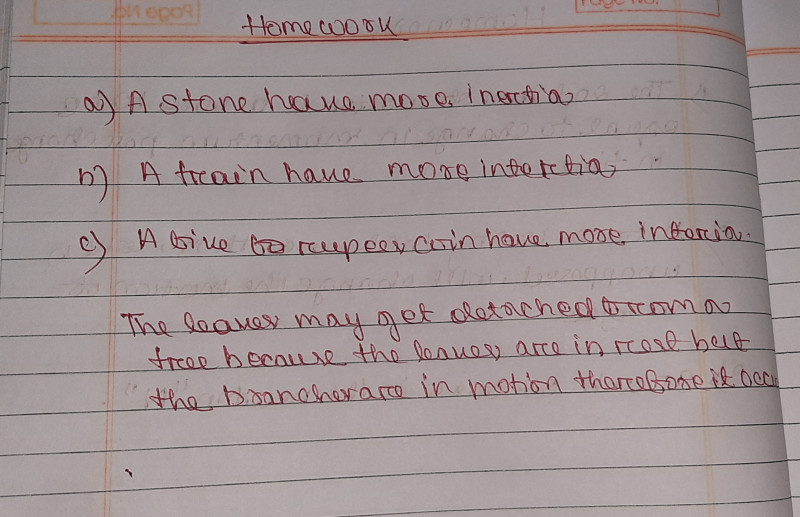 Homework
a) A stone have more inertia
b) A train have more intertia
c) A five rupees coin have more interia.
The leaves may get detached from a
tree because the leaves are in rest but
the branches are in motion therefore it occu